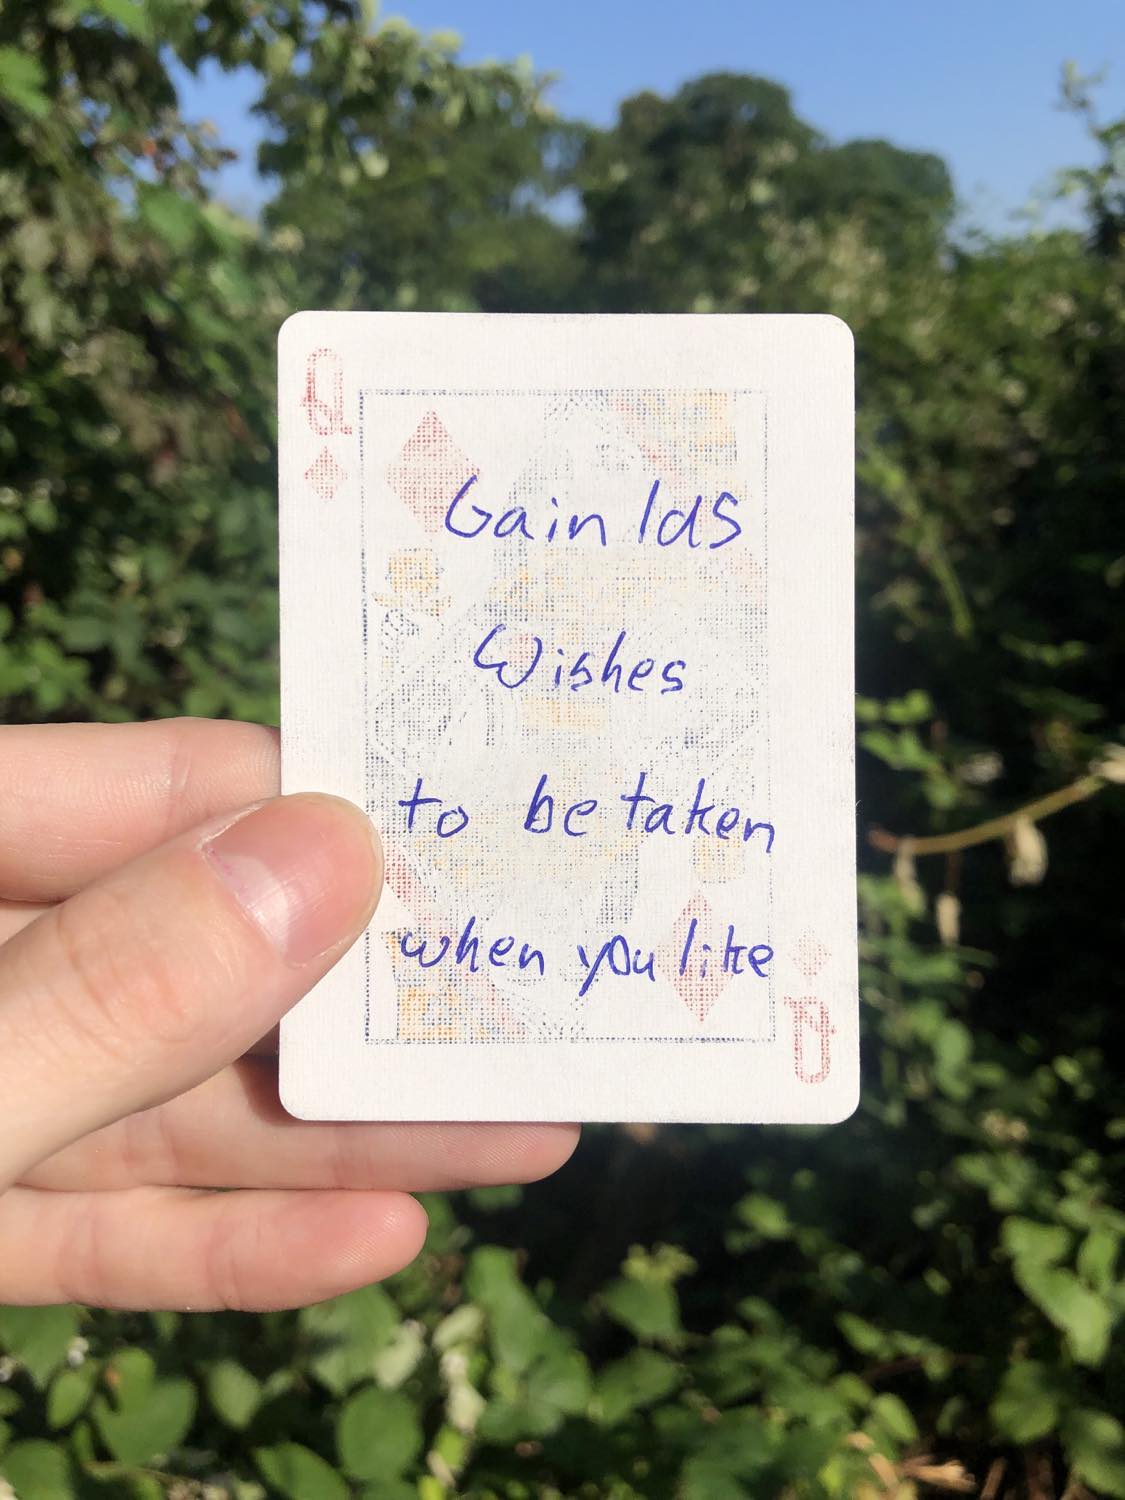 Q
Gain 1d8
Wishes
to be taken
when you like
Q